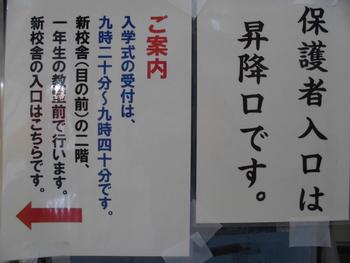 保護者入口は
昇降口です。
ご案内
入学式の受付は、
九時二十分～九時四十分です。
新校舎（目の前）の二階、
一年生の教室前で行います。
新校舎の入口はこちらです。